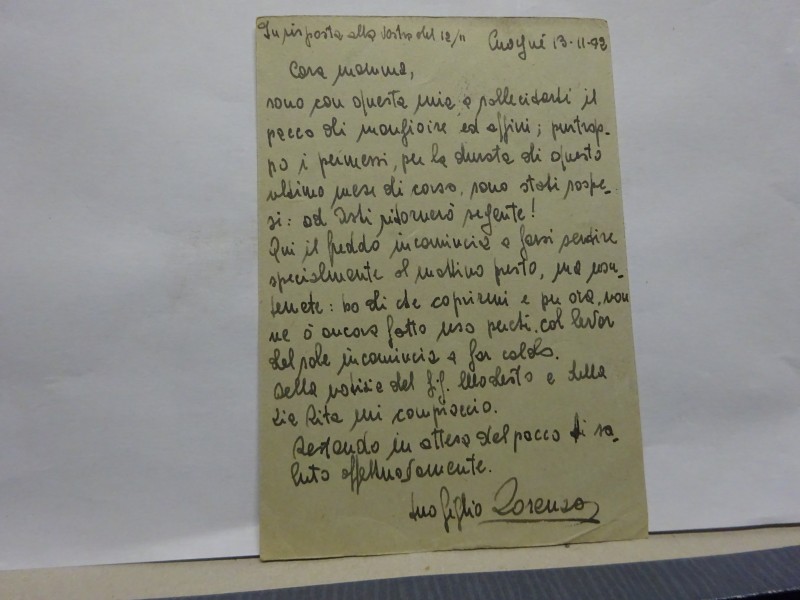 In risposta alla Vostra del 12/11 Cuorgnè 13-11-42
Cara mamma,
sono con questa mia a sollecitarti il
pacco di mangiare ed affini; purtrop-
po i permessi, per la durata di questo
ultimo mese di corso, sono stati sospe-
si: ad Asti ritornerò sergente!
Qui il freddo incomincia a farsi sentire
specialmente al mattino presto, ma non
temete: ho di che coprirmi e per ora, non
ne ò ancora fatto uso perché, col levar
del sole incomincia a far caldo.
Della notizia del Modesto e della
Zia Rita mi compiaccio.
Restando in attesa del pacco ti sa-
luto affettuosamente.
tuo figlio Lorenzo